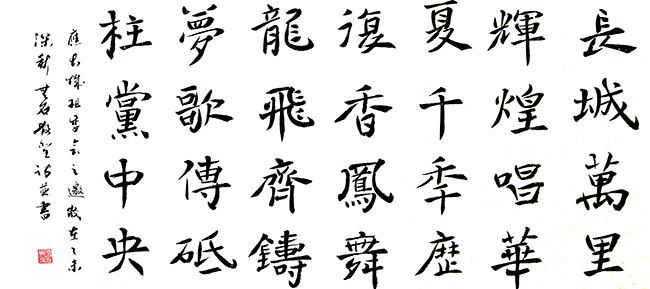 長城萬里
輝煌唱華
夏千秊歷
復香鳳舞
龍飛齊鑄
夢歌傳砥
柱黨中央